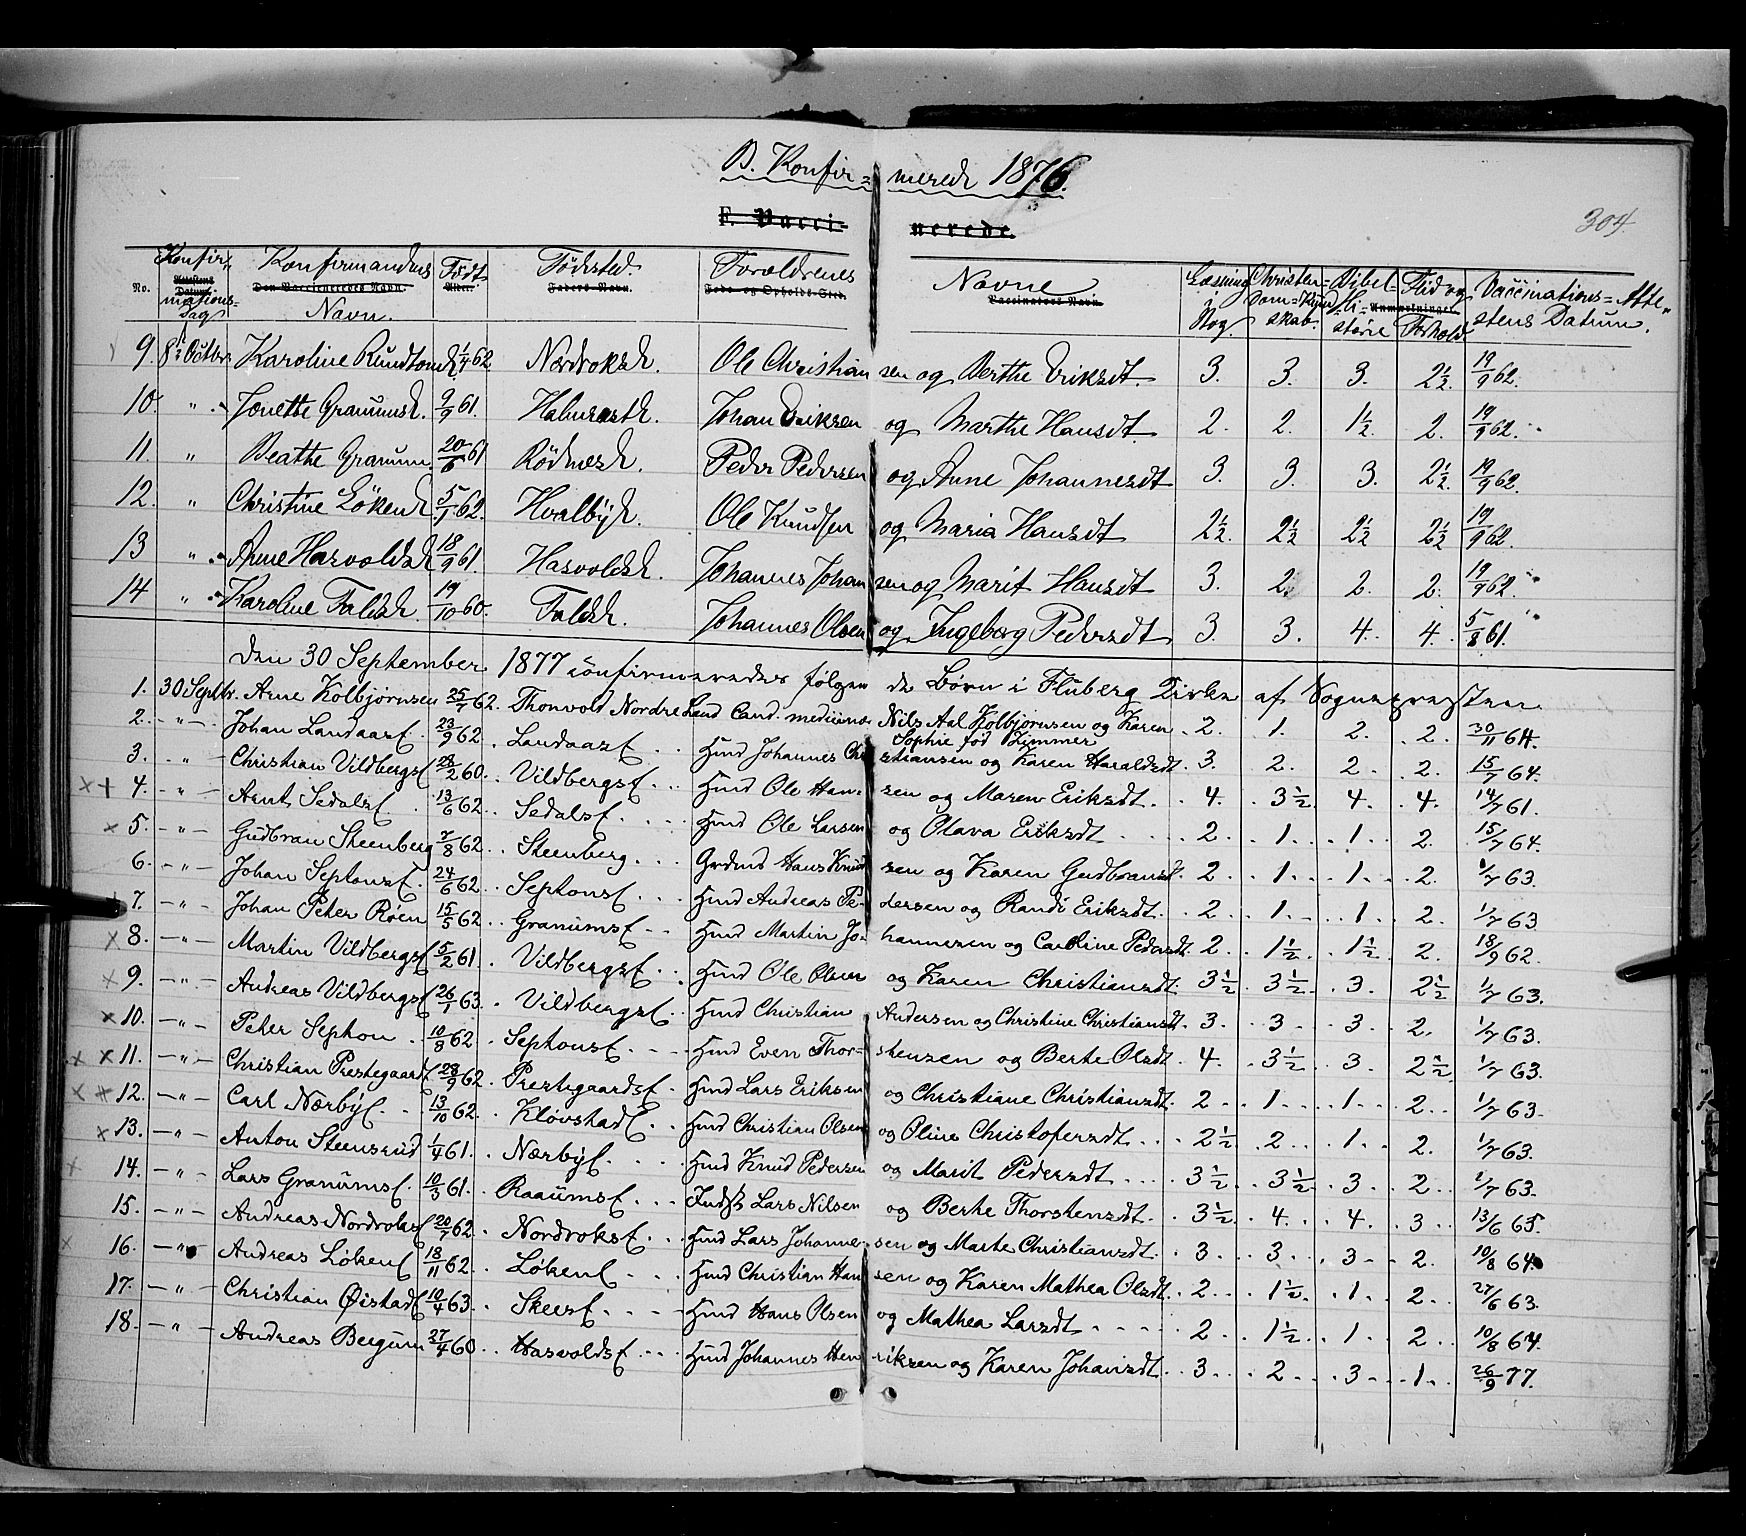 B. Konfir= merede 1876.
F. Vacci- nerede.
304
No. Konfir= mations= Dag Konfirmandens Navn. Født Fødested. Forældrenes Navne Læsning i Bog. Christen= dom=Kund skab. Bibel= Hi= storie Flid og Forhold. Vaccinations=Atte= stens Datum.
Attestens Datum. Den Vaccineredes Navn. Alder. Faders-Navn. Føde- og Opholds-Sted. Vaccinators Navn. Anmærkninger.
9. 8de Octbr. Karoline Rundton 1/4 62 Nordroksk. Ole Christian sen og Berthe Eriksdt. 3. 3. 3. 2½. 19/9 62.
10. " Jonette Granumsk. 9/9 61. Halmrastk. Johan Eriksen og Marthe Hansdt. 2. 2. 1½. 2. 19/9 62.
11 " Beathe Granum. 20/6 61 Rödnesk. Peder Pedersen og Anne Johannesdt 3. 3. 3. 2½. 19/9 62.
12. " Christine Lökenk 5/1 62. Hvalbyk. Ole Knudsen og Maria Hansdt 2½. 2½ 2½ 2½ 19/9 62.
13 " Anne Hasvoldsk 18/9 61. Hasvoldsk. Johannes Johan sen og Marit Hansdt 3. 2. 2. 2. 19/9 62.
14 " Karoline Faldsk. 19/10 60. Faldsk. Johannes Olsen og Ingeborg Pedersdt 3. 3. 4. 4. 5/8 61.
Den 30 September 1877 confirmeredes følgen de Børn i Fluberg Kirke af Sognepresten
1. 30 Septbr. Arne Kolbjørnsen 25/7 62. Thonvold Nordre Land Cand. medicinæ Nils Aal Kolbjørnsen og Karen Sophie fød Zimmer 2. 1. 2. 2. 30/11 64.
2. - " - Johan Landaasf. 23/9 62. Landaasf. Hmd Johannes Chri stiansen og Karen Haraldsdt. 3. 2. 2. 2. 15/7 64.
3. - " - Christian Vildbergsf 28/2 60. Vildbergsf. Hmd Ole Han= sen og Maren Eriksdt. 4. 3½. 4. 4. 14/7 61.
4. - " - Arnt Sedalsf. 13/6 62. Sedalsf. Hmd Ole Larsen og Olava Eriksdt 2. 1. 1. 2. 15/7 64.
5. - " - Gudbran Steenberg 7/8 62. Steenberg. Grdmd Hans Knud sen og Karen Gudbransdt. 2. 1. 1. 2. 1/7 63.
6. - " - Johan Septonsf. 24/6 62. Septonsf. Hmd Andreas Pe= dersen og Randi Eriksdt. 2. 1. 1. 2. 1/7 63.
7. - " - Johan Peter Røen 15/5 62. Granumsf. Hmd Martin Jo= hannesen og Caroline Pedersdt. 2. 1½. 1½. 2. 18/9 62.
8. - " - Martin Vildbergsf 5/2 61. Vildbergsf. Hmd Ole Olsen og Karen Christiansdt. 3½. 3½. 3. 2½ 1/7 63.
9. - " - Andreas Vildbergsf 26/1 63. Vildbergsf. Hmd Christian Andersen og Christine Christiansdt. 3. 3. 3. 2. 1/7 63.
10. - " - Peter Sephon 10/8 62. Septonsf. Hmd Even Thor= stensen og Berte Olsdt. 4. 3½. 3. 2½. 1/7 63.
11. - " - Christian Prestegaardsf 28/9 62. Prestegaardsf. Hmd Lars Eriksen og Christiane Christiansdt. 2. 1. 1. 2. 1/7 63.
12. - " - Carl Nærbyf. 13/10 62. Kløvstadf. Hmd Christian Olsen og Oline Christofersdt. 2½. 2. 1. 2. 1/7 63.
13. - " - Anton Steensrud 1/4 61. Nærbyf. Hmd Knud Pedersen og Marit Pedersdt 3½. 3½. 3. 2. 1/7 63.
14. - " - Lars Granumsf. 10/3 61. Raaumsf. Indst Lars Nilsen og Berte Thorstensdt. 3½. 4. 4. 3. 13/6 65.
15. - " - Andreas Nordroksf 20/7 62. Nordroksf. Hmd Lars Johanne= sen og Marte Christiansdt. 3. 3. 3. 2. 10/8 64.
16. - " - Andreas Løkenf 18/11 62. Løkenf. Hmd Christian Han sen og Karen Mathea Olsdt. 2. 1½. 1. 2. 27/6 63.
17. - " - Christian Øistadf 10/4 63. Skeesf. Hmd Hans Olsen og Mathea Larsdt 2. 1½. 1. 2. 10/8 64.
18. - " - Andreas Bergum 27/4 60. Hasvoldsf. Hmd Johannes Hen riksen og Karen Johansdt. 3. 2. 3. 1. 26/9 77.